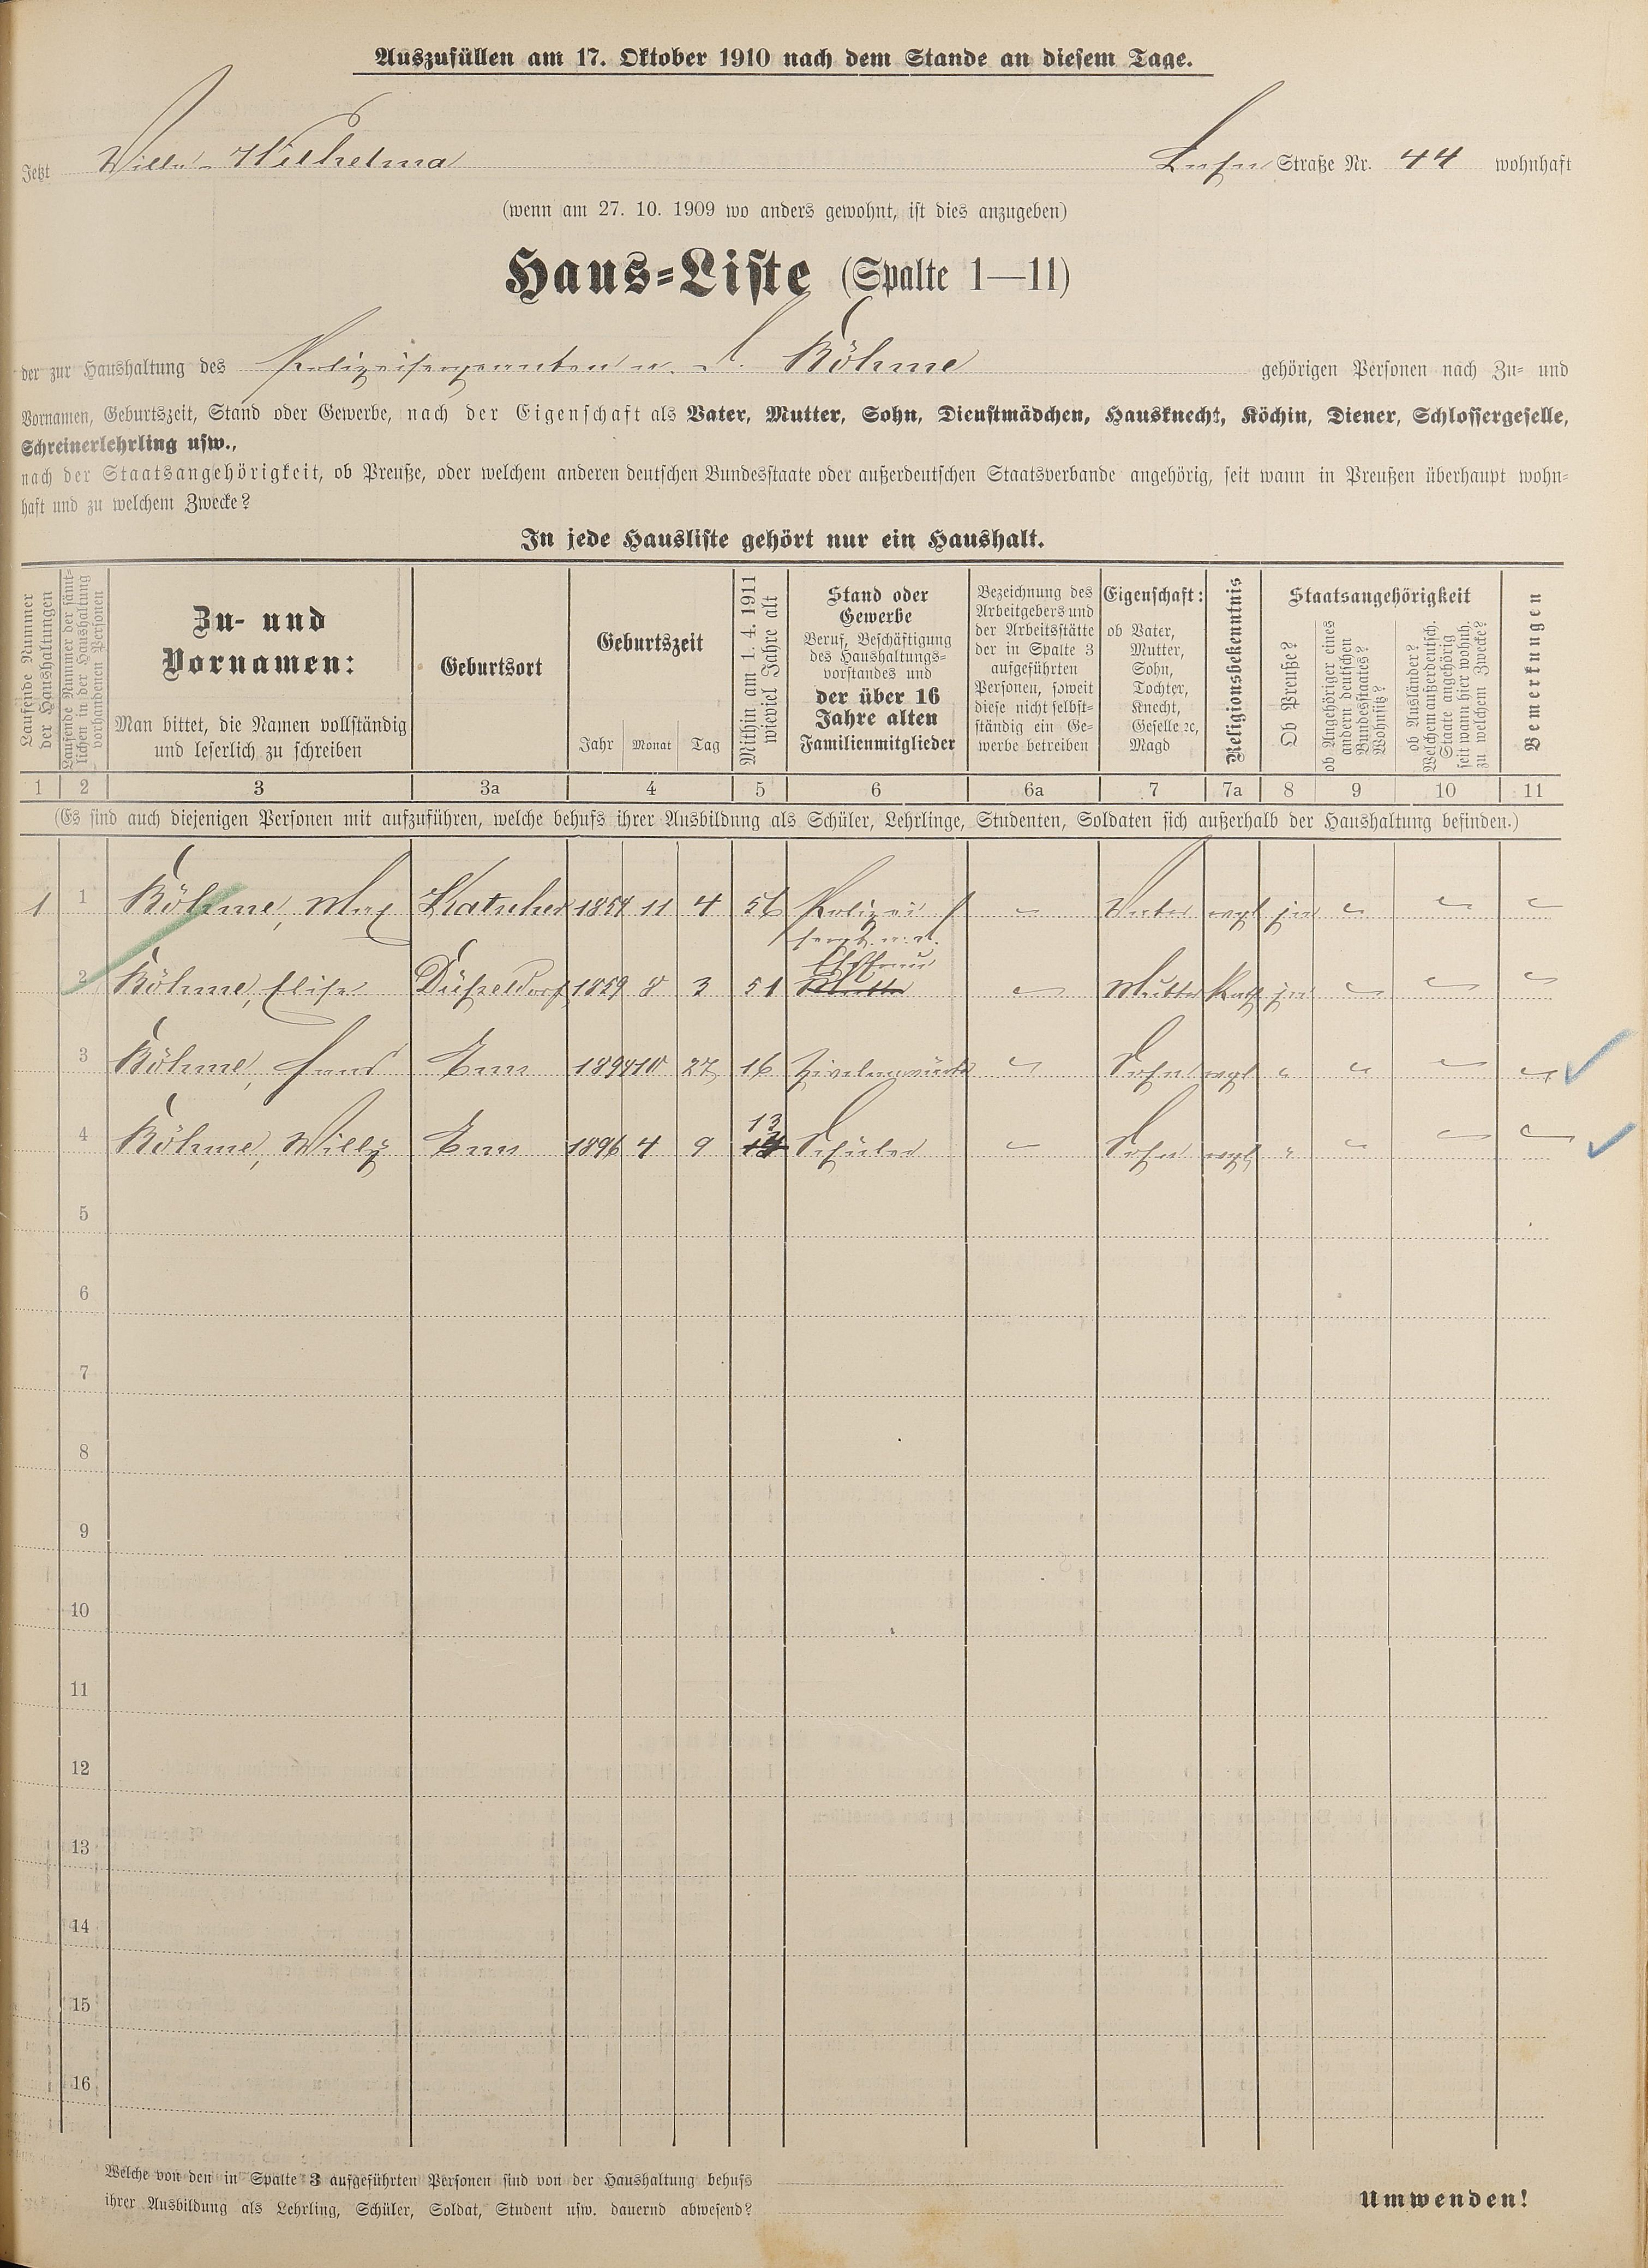 Auszufüllen am 17. Oktober 1910 nach dem Stande an diesem Tage.
Jetzt Villa Wilhelma Lahn Straße Nr. 44 wohnhaft
(wenn am 27. 10. 1909 wo anders gewohnt, ist dies anzugeben)
Haus-Liste (Spalte 1—11)
der zur Haushaltung des Polizeisergeanten a. D. Böhme gehörigen Personen nach Zu- und
Vornamen, Geburtszeit, Stand oder Gewerbe, nach der Eigenschaft als Vater, Mutter, Sohn, Dienstmädchen, Hausknecht, Köchin, Diener, Schlossergeselle,
Schreinerlehrling usw.,
nach der Staatsangehörigkeit, ob Preuße, oder welchem anderen deutschen Bundesstaate oder außerdeutschen Staatsverbande angehörig, seit wann in Preußen überhaupt wohn-
haft und zu welchem Zwecke?
In jede Hausliste gehört nur ein Haushalt.
Laufende Nummer der Haushaltungen
Laufende Nummer der sämt-
lichen in der Haushaltung
vorhandenen Personen
Zu- und
Vornamen:
Man bittet, die Namen vollständig
und leserlich zu schreiben
Geburtsort
Geburtszeit
Jahr Monat Tag
Mithin am 1. 4. 1911
wieviel Jahre alt
Stand oder
Gewerbe
Beruf, Beschäftigung
des Haushaltungs-
vorstandes und
der über 16
Jahre alten
Familienmitglieder
Bezeichnung des
Arbeitgebers und
der Arbeitsstätte
der in Spalte 3
aufgeführten
Personen, soweit
diese nicht selbst-
ständig ein Ge-
werbe betreiben
Eigenschaft:
ob Vater,
Mutter,
Sohn,
Tochter,
Knecht,
Geselle ec,
Magd
Religionsbekenntnis
Staatsangehörigkeit
Ob Preuße?
ob Angehöriger eines
andern deutschen
Bundesstaates?
Wohnsitz?
ob Ausländer?
Welchem außerdeutsch.
Staate angehörig
seit wann hier wohnh.
zu welchem Zwecke?
Bemerkungen
1 2 3 3a 4 5 6 6a 7 7a 8 9 10 11
(Es sind auch diejenigen Personen mit aufzuführen, welche behufs ihrer Ausbildung als Schüler, Lehrlinge, Studenten, Soldaten sich außerhalb der Haushaltung befinden.)
1 1 Böhme, Max Katscher 1854 11 4 56 Polizei Vater evgl ja
sergt. a. D.
Ehefrau
2 Böhme, Elise Düsseldorf 1859 8 3 51 Mutter Mutter Kath ja
3 Böhme, Hans Ems 1894 10 27 16 Sohn evgl "
13
4 Böhme, Willy Ems 1896 4 9 14 Schüler Sohn evgl "
5
6
7
8
9
10
11
12
13
14
15
16
Welche von den in Spalte 3 aufgeführten Personen sind von der Haushaltung behufs
ihrer Ausbildung als Lehrling, Schüler, Soldat, Student usw. dauernd abwesend?
Umwenden!